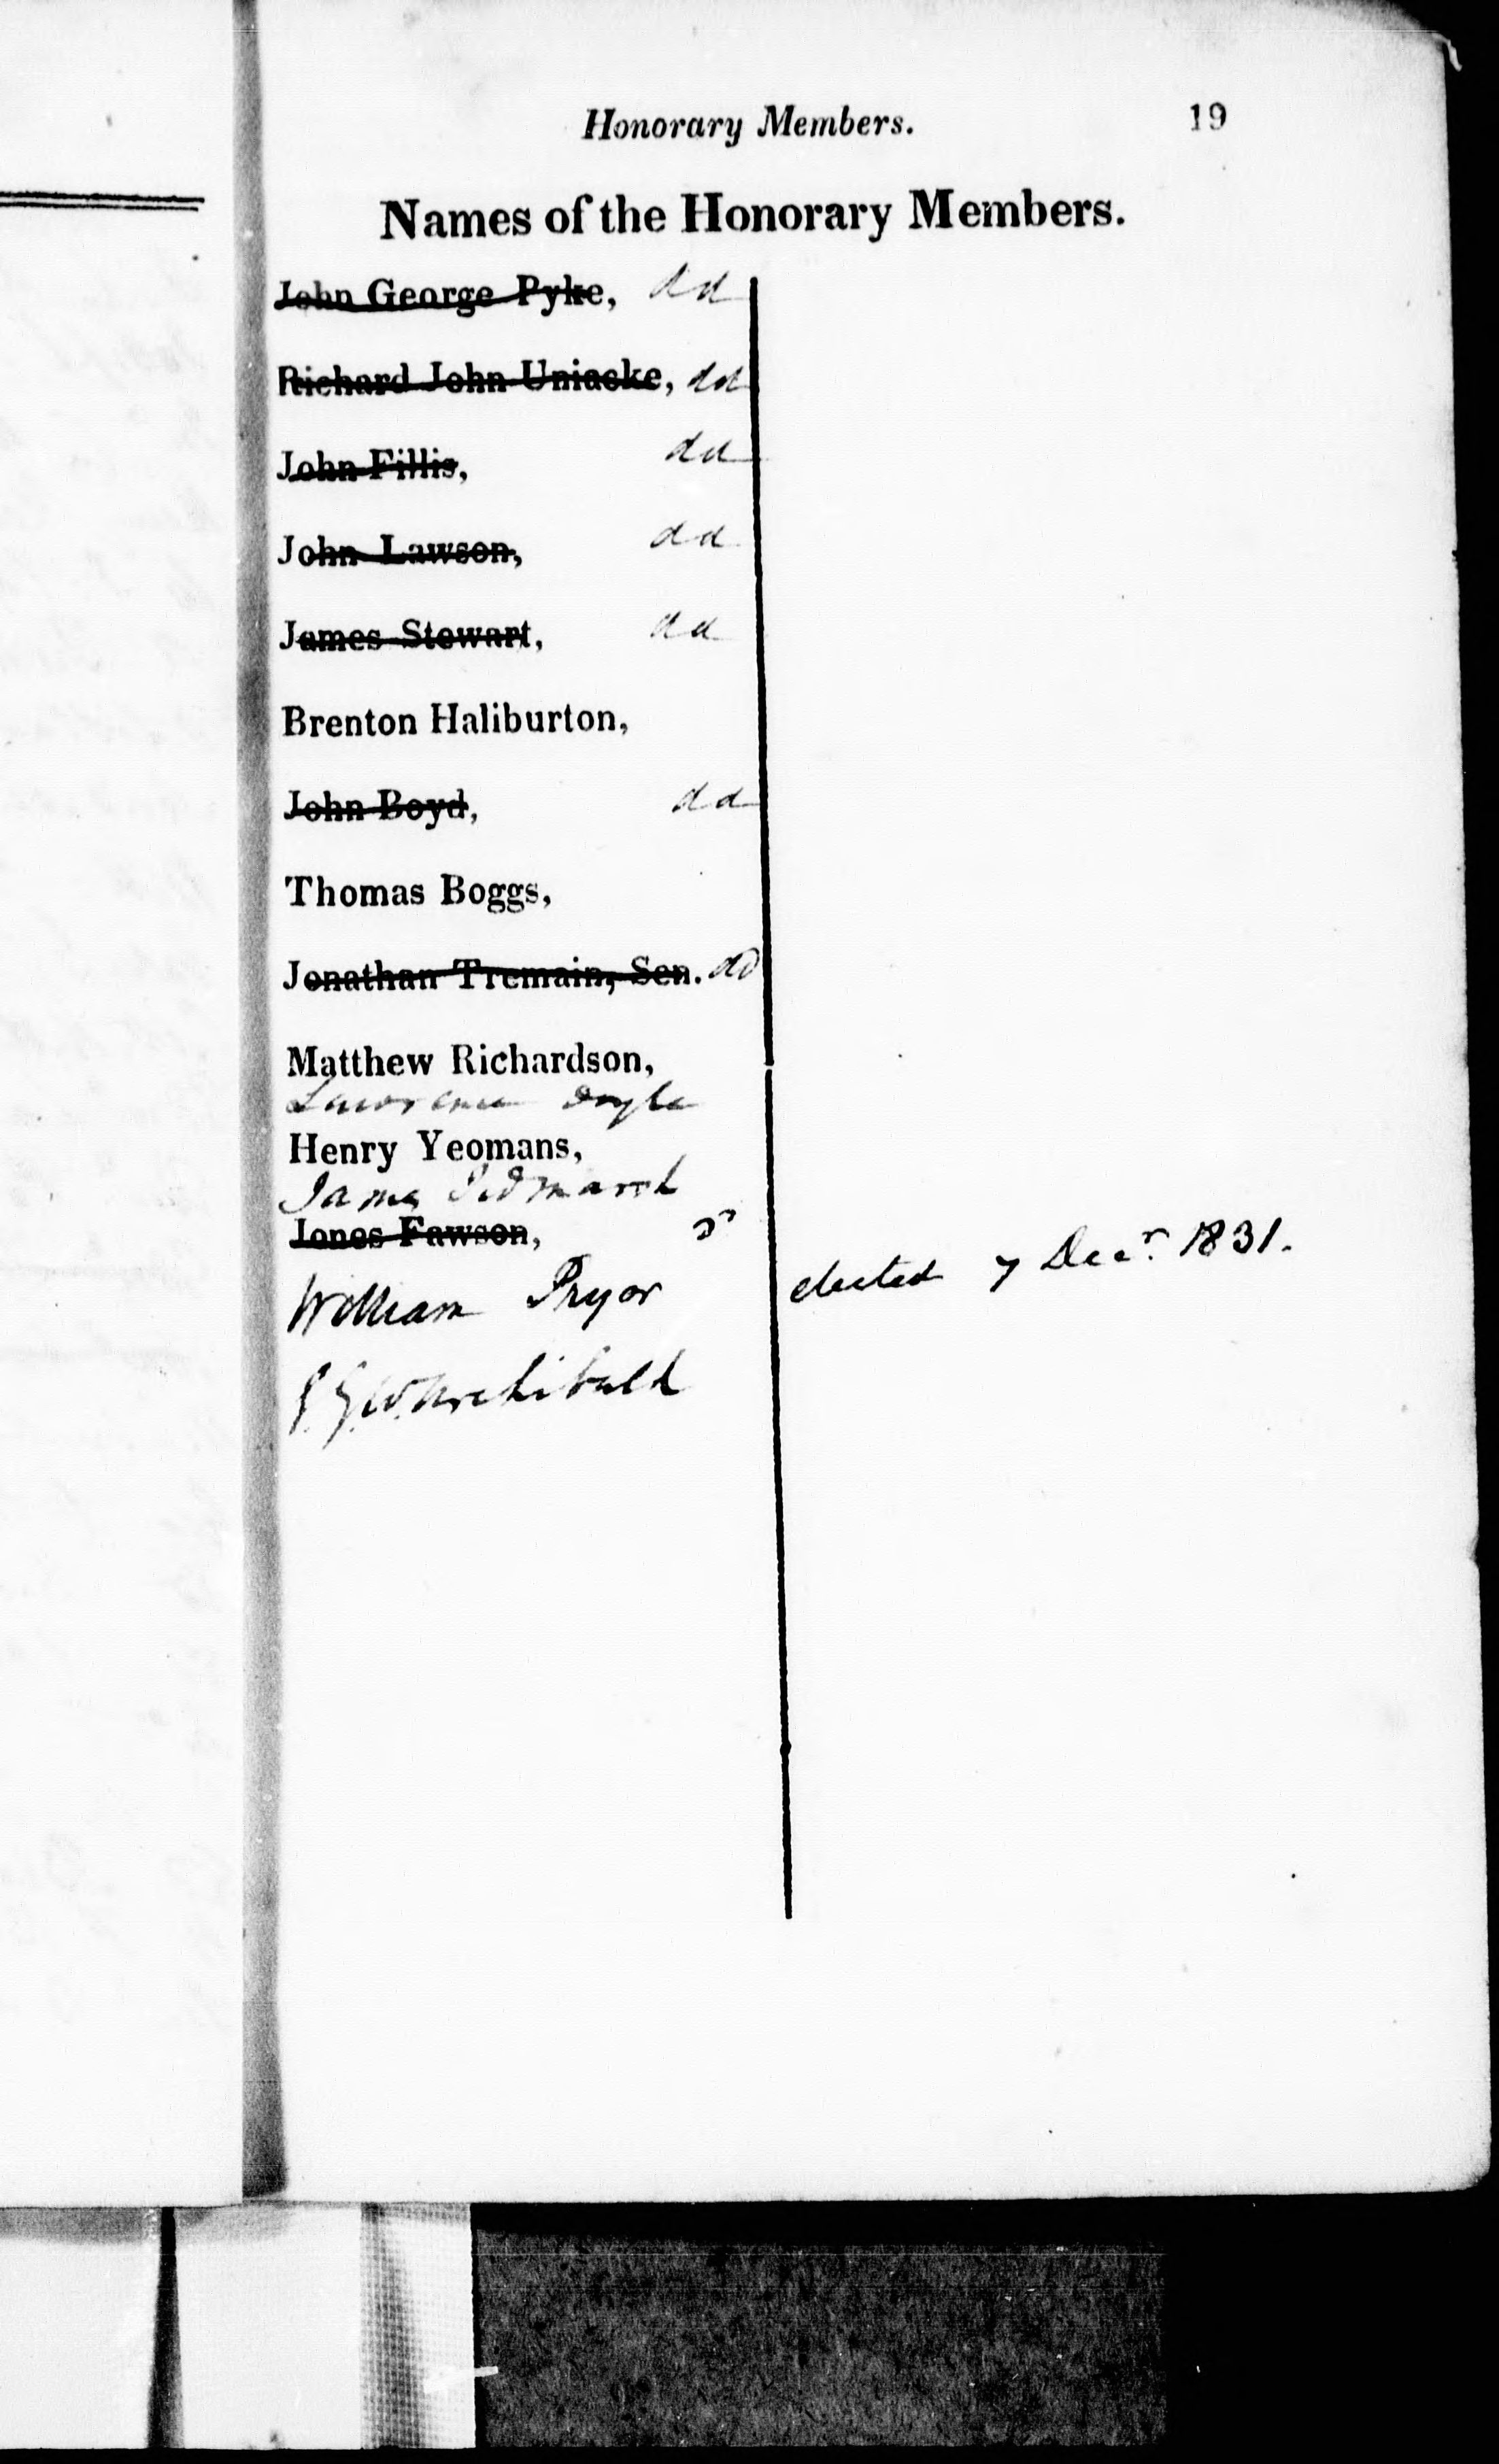 Honorary Members. 19
Names of the Honorary Members.
John George Pyke, dd
Richard John Uniacke, dd
John Fillis, dd
John Lawson, dd
James Stewart, dd
Brenton Haliburton,
John Boyd, dd
Thomas Boggs,
Jonathan Tremain, Sen. dd
Matthew Richardson,
Lawrence Doyle
Henry Yeomans,
James Tidmarsh
Jones Fawson,
William Pryor elected 7 Decr. 1831.
S. G. W. Archibald